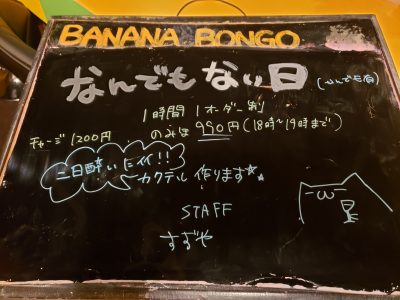 BANANA BONGO
なんでもない日
1時間 1オーダー制
チャージ 1200円
のみほ 990円 (18時~19時まで)
二日酔いにイイ!!
カクテル 作ります☆
STAFF
すずや